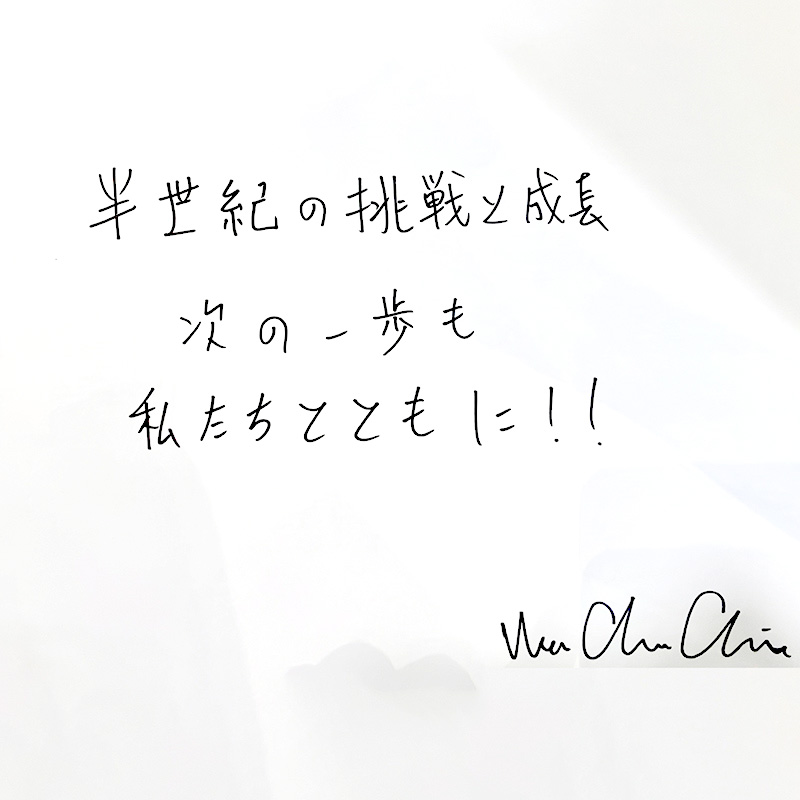 半世紀の挑戦と成長
次の一歩も
私たちとともに!!